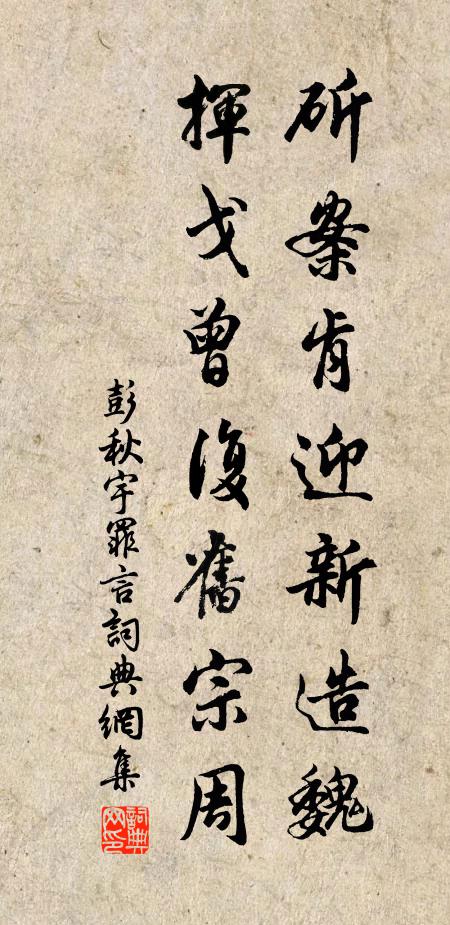 斫案肯迎新造魏
揮戈曾復舊宗周
彭秋宇罪言詞典網集
詞典网印